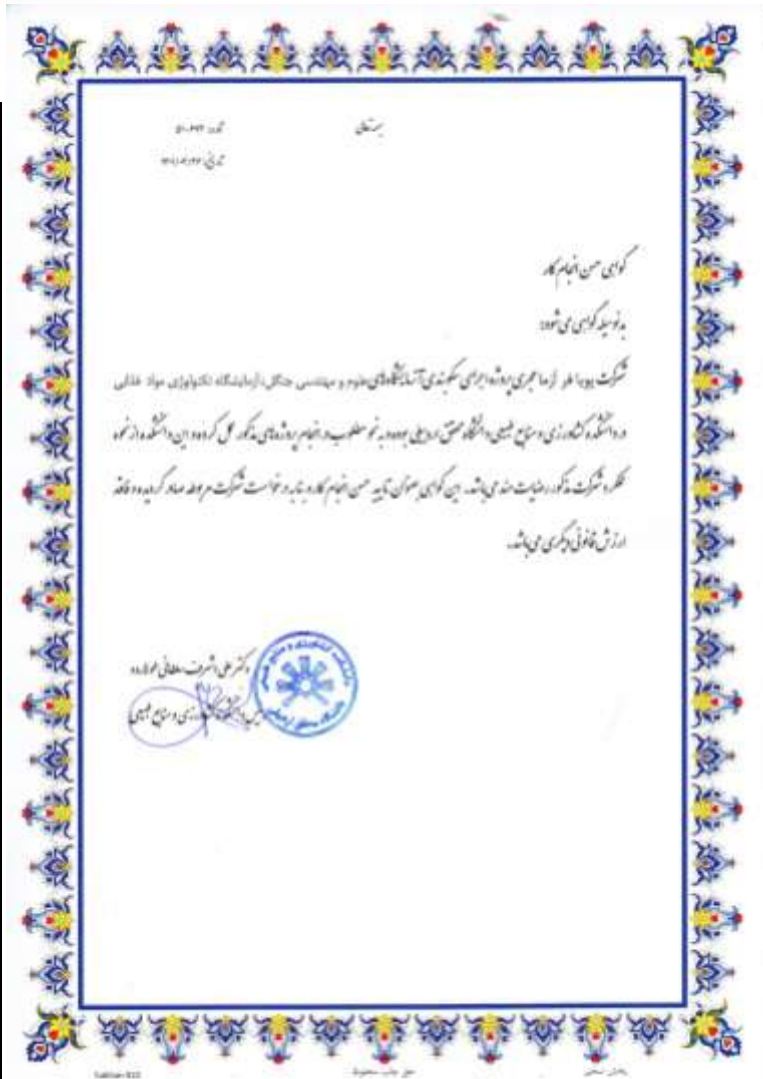 بسمه تعالی
شماره:
تاریخ:
گواهی حسن انجام کار
بدنوسیله گواهی می شود:
شرکت پویا طرح آزما مجری پروژه اجرای سکوبندی آزمایشگاههای علوم و مهندسی جنگل، آزمایشگاه تکنولوژی مواد غذائی
در دانشکده کشاورزی و منابع طبیعی دانشگاه محقق اردبیلی بوده و به نحو مطلوب در انجام پروژه های مذکور عمل کرده و این دانشکده از نحوه
عملکرد شرکت مذکور رضایت مند می باشد. این گواهی بعنوان تایید حسن انجام کار و بنا به درخواست شرکت مربوطه صادر گردیده و فاقد
ارزش قانونی دیگری می باشد.
دکتر علی اشرف سلطانی
رئیس دانشکده کشاورزی و منابع طبیعی
دانشکده کشاورزی و منابع طبیعی
دانشگاه محقق اردبیلی
حق چاپ محفوظ